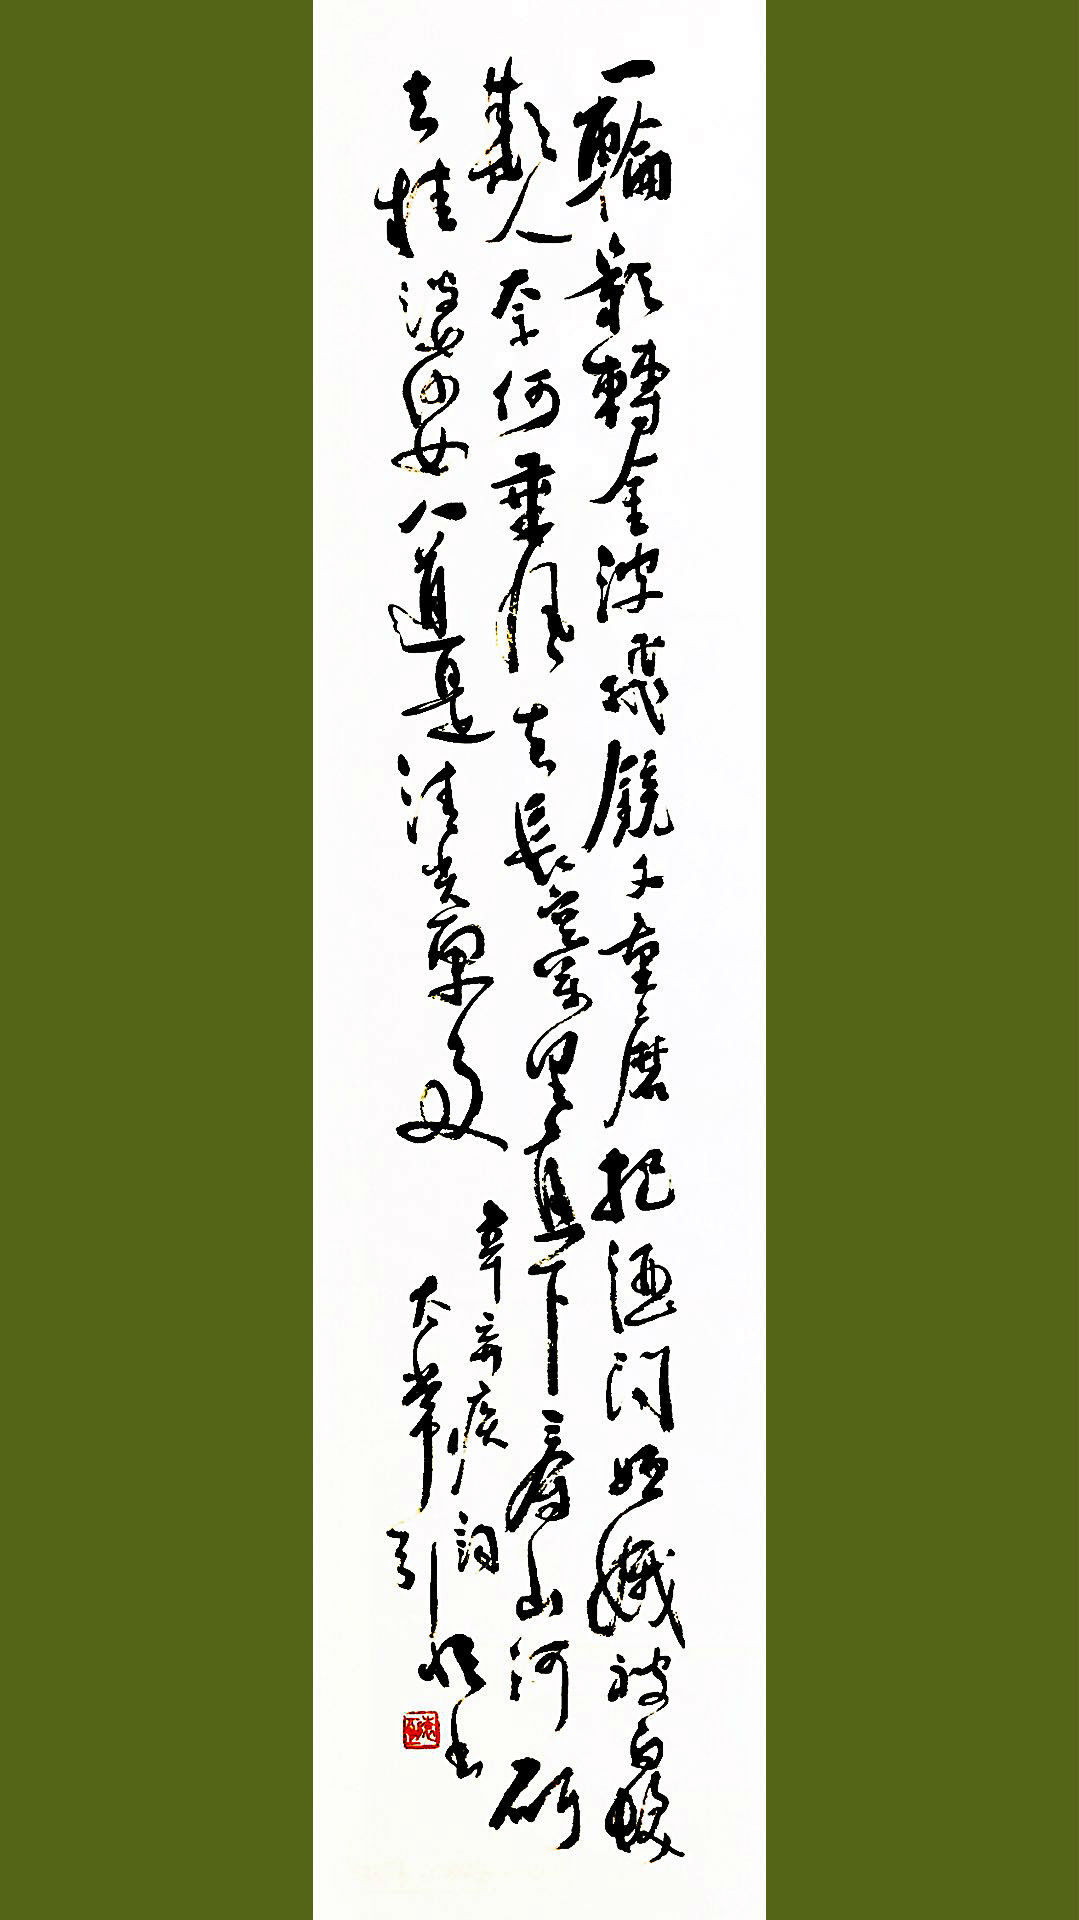 一輪影轉金波飛鏡又重磨把酒問姮娥被白髮
欺人奈何乘風去長空萬里直下看山河斫
去桂婆娑人道是清光更多
辛弃疾詞
太常引 书